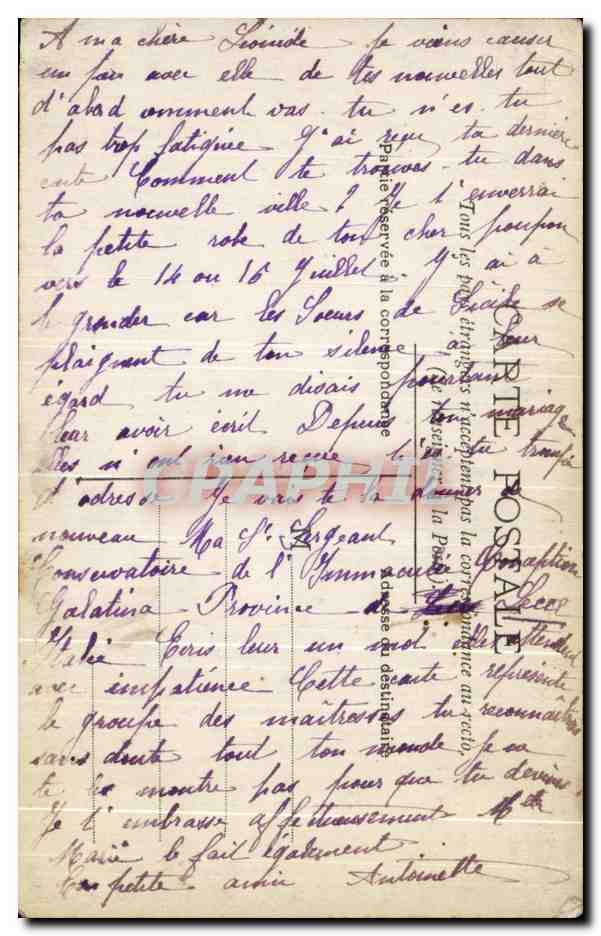 A ma chère je viens causer
un peu avec elle de tes nouvelles tout
d'abord comment vas-tu n'es-tu
pas trop fatiguée J'ai reçu ta dernière
carte Comment te trouves-tu dans
ta nouvelle ville ? Je t'enverrai
la petite robe de ton cher poupon
vers le 14 ou 16 Juillet. J'ai à
te gronder car les Soeurs de se
plaignent de ton silence à leur
égard tu me disais pourtant
leur avoir écrit Depuis ton mariage
elles n'ont rien reçu tu trompé
d'adresse Je vais te la donner de
nouveau Ma Sr Sergeant
Conservatoire de l'Immaculée Conception
Galatina Province de Lecce
Italie Ecris leur un mot elles attendent
avec impatience Cette carte représente
le groupe des maîtresses tu reconnaîtras
sans doute tout ton monde Je
te les montre pas pour que tu devines
Je t'embrasse affectueusement
Marie le fait également
Ta petite amie Antoinette
CARTE POSTALE
Tous les pays étrangers n'acceptent pas la correspondance au recto,
(Se renseigner à la Poste)
Partie réservée à la correspondance
Adresse du destinataire
M
CPAPHIL